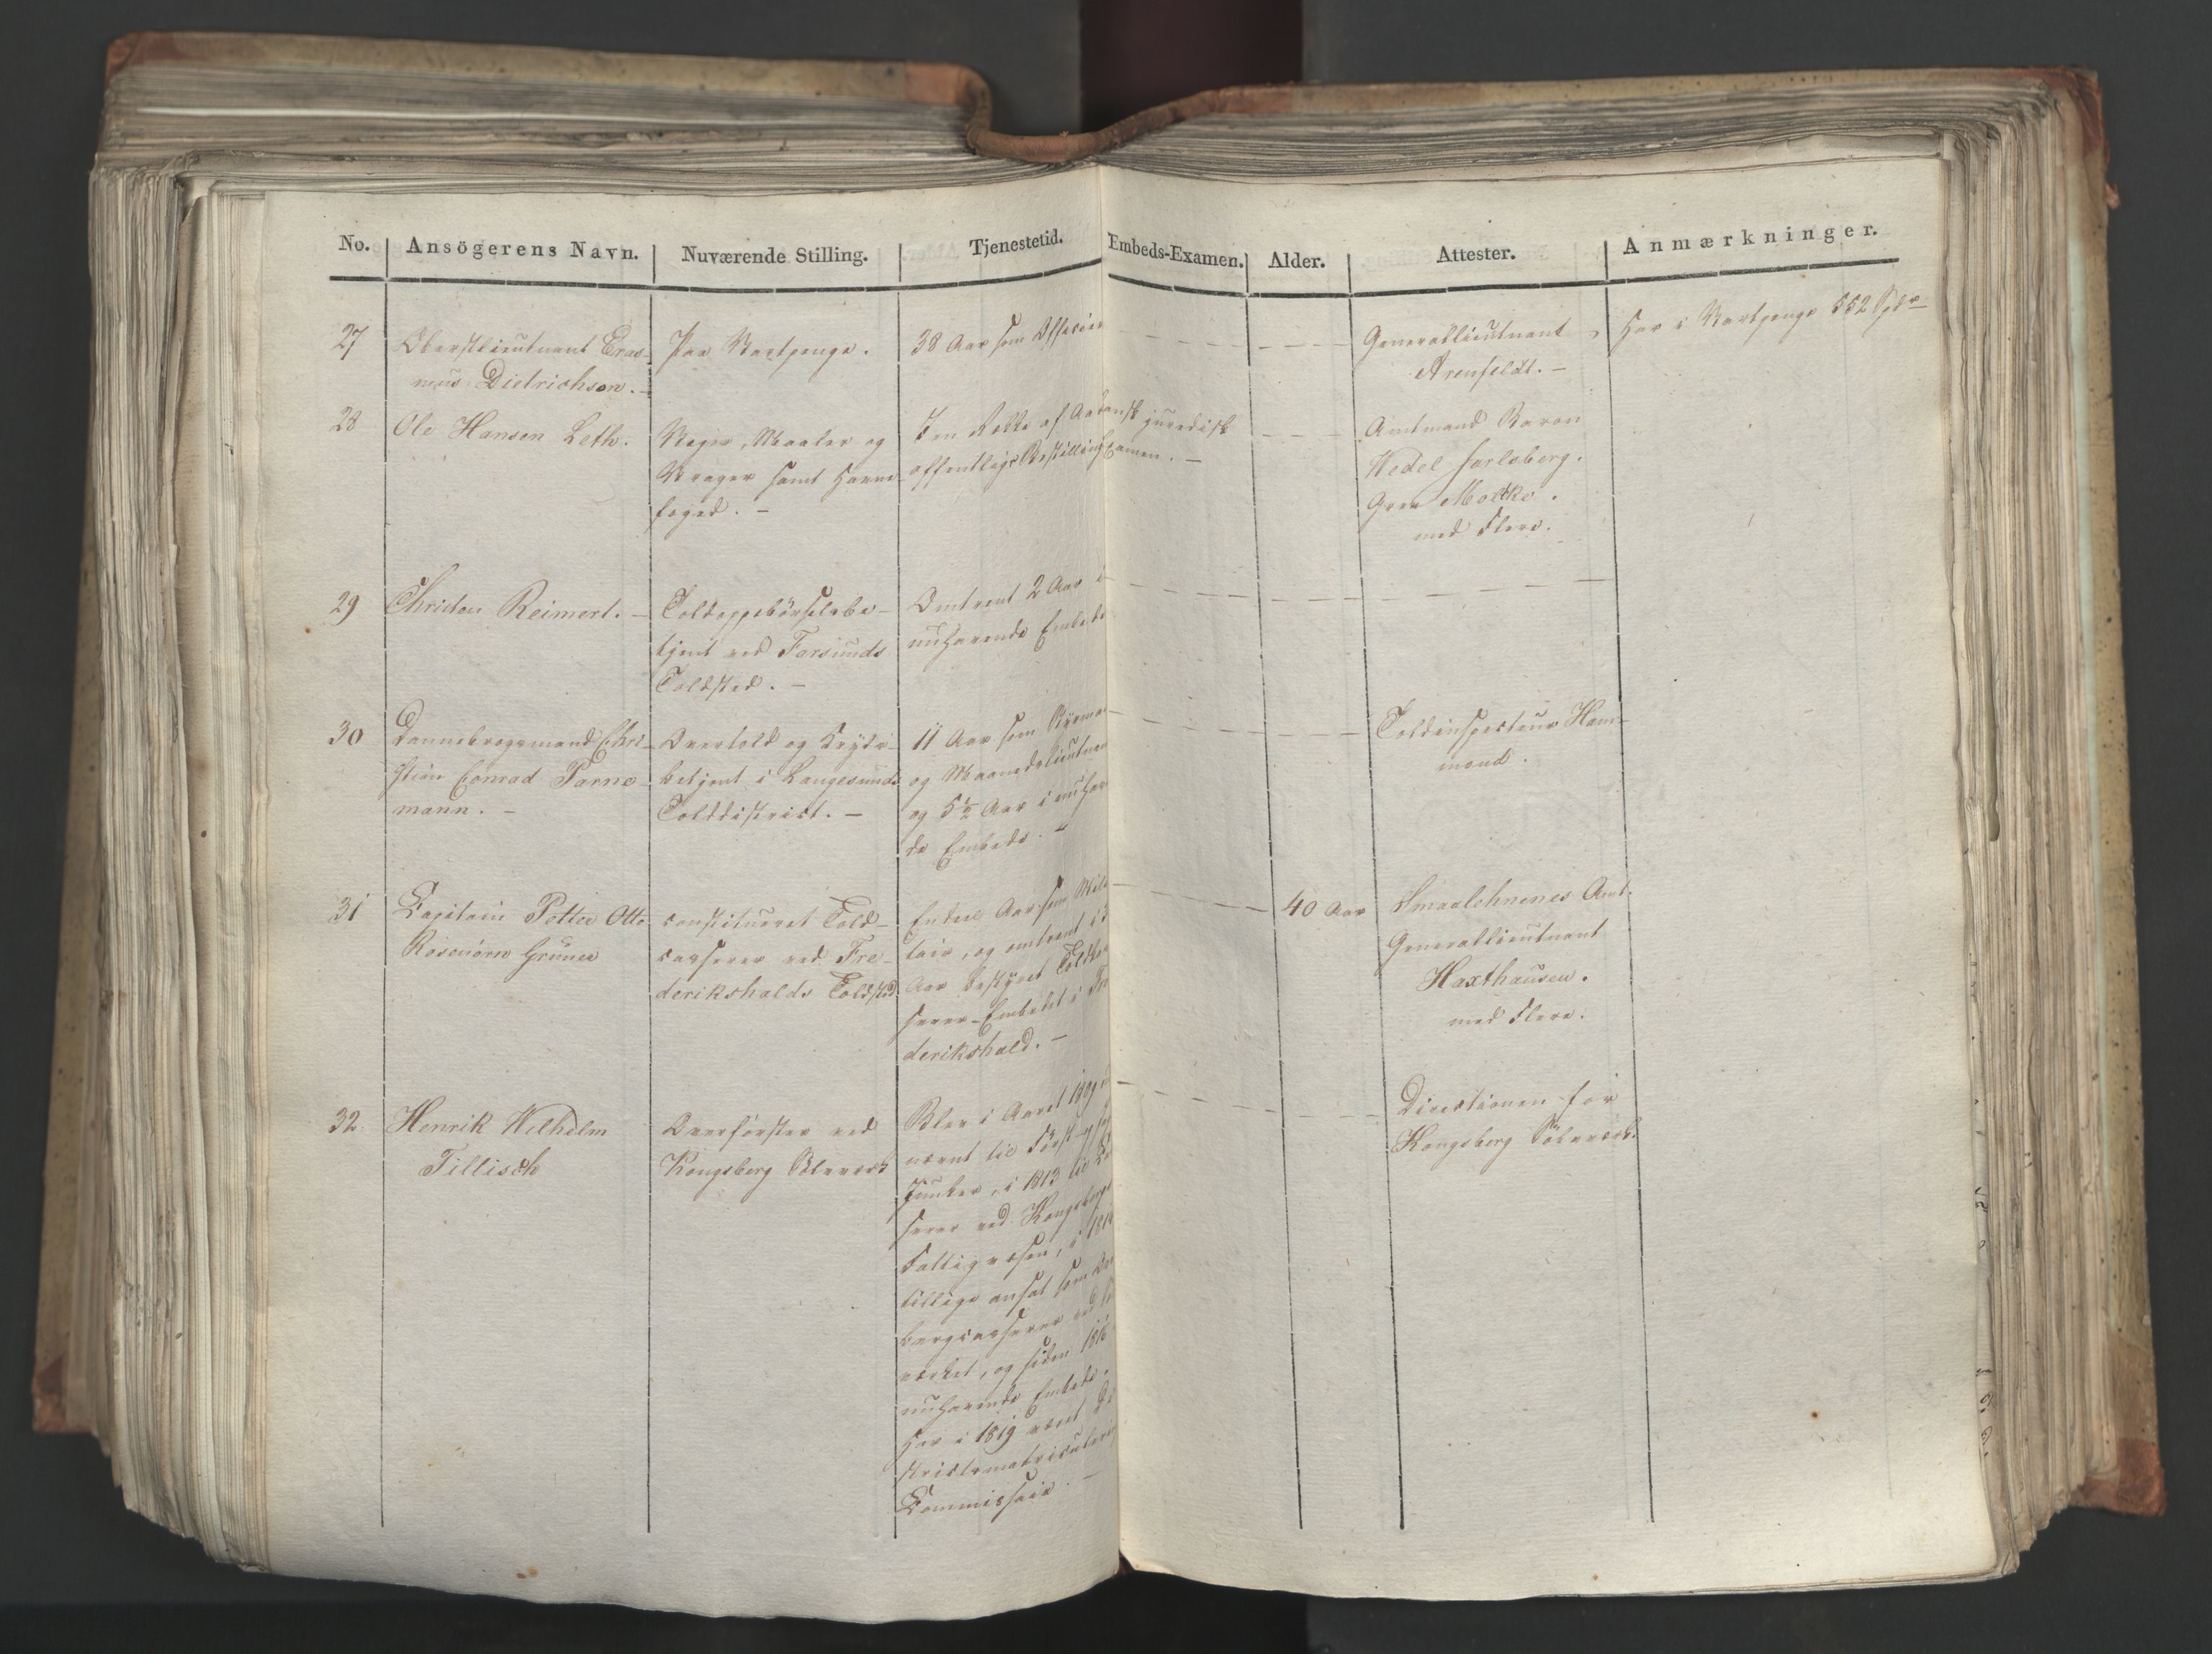 No. Ansögerens Navn. Nuværende Stilling. Tjenestetid. Embeds-Examen. Alder. Attester. Anmærkninger.
27
Oberstlieutnant Eras-
mus Dietrichson. -
Paa Vartpenge.
38 Aar som Officeer
Generallieutnant
Arenfeldt. -
Har i Vartpenge 552 Spdr
28
Ole Hansen Leth.
Veier, Maaler og
Vrager samt Havne-
foged. -
I en Række af Aar
offentlige Bestilling
Dansk juridisk
Examen. -
Amtmand Baron
Wedel Jarlsberg.
Grev Moltke.
med Flere.
29
Christen Reimert. -
Toldoppebörselsbe-
tjent ved Farsunds
Toldsted. -
Omtrent 2 Aar i
nuhavende Embede
30
Dannebrogsmand Chri-
stian Conrad Parne-
mann. -
Overtold og Kryds-
betjent i Langesunds
Tolddistrict. -
11 Aar som
og Maanedslieutnan
og 5½ Aar i nuhaven
de Embede. -
Toldinspecteur Ham-
mond.
31
Capitain Petter Otto
Rosenörn Grüner
constitueret Told-
casserer ved Fre-
derikshalds Toldsted
Endeel Aar som Mili
tair, og omtrent
Aar bestyret Toldkas
serer-Embedet i Fre
derikshald. -
40 Aar
Smaalehnenes Amt.
Generallieutnant
Haxthausen.
med Flere.
32.
Henrik Wilhelm
Tillisch
Overförster ved
Kongsberg Sölvværk
Blev i Aaret 1809
nævnt til Forst- og
Junker, i 1813 til Kas
serer ved Kongsbergs
Fattigvæsen, i 1814
tillige ansat som
bergcasserer ved
værket, og siden 1816
nuhavende Embede.
Har i 1819 været Di
strictsmatriculerings
Commissair. -
Directionen for
Kongsberg Sölvværk.